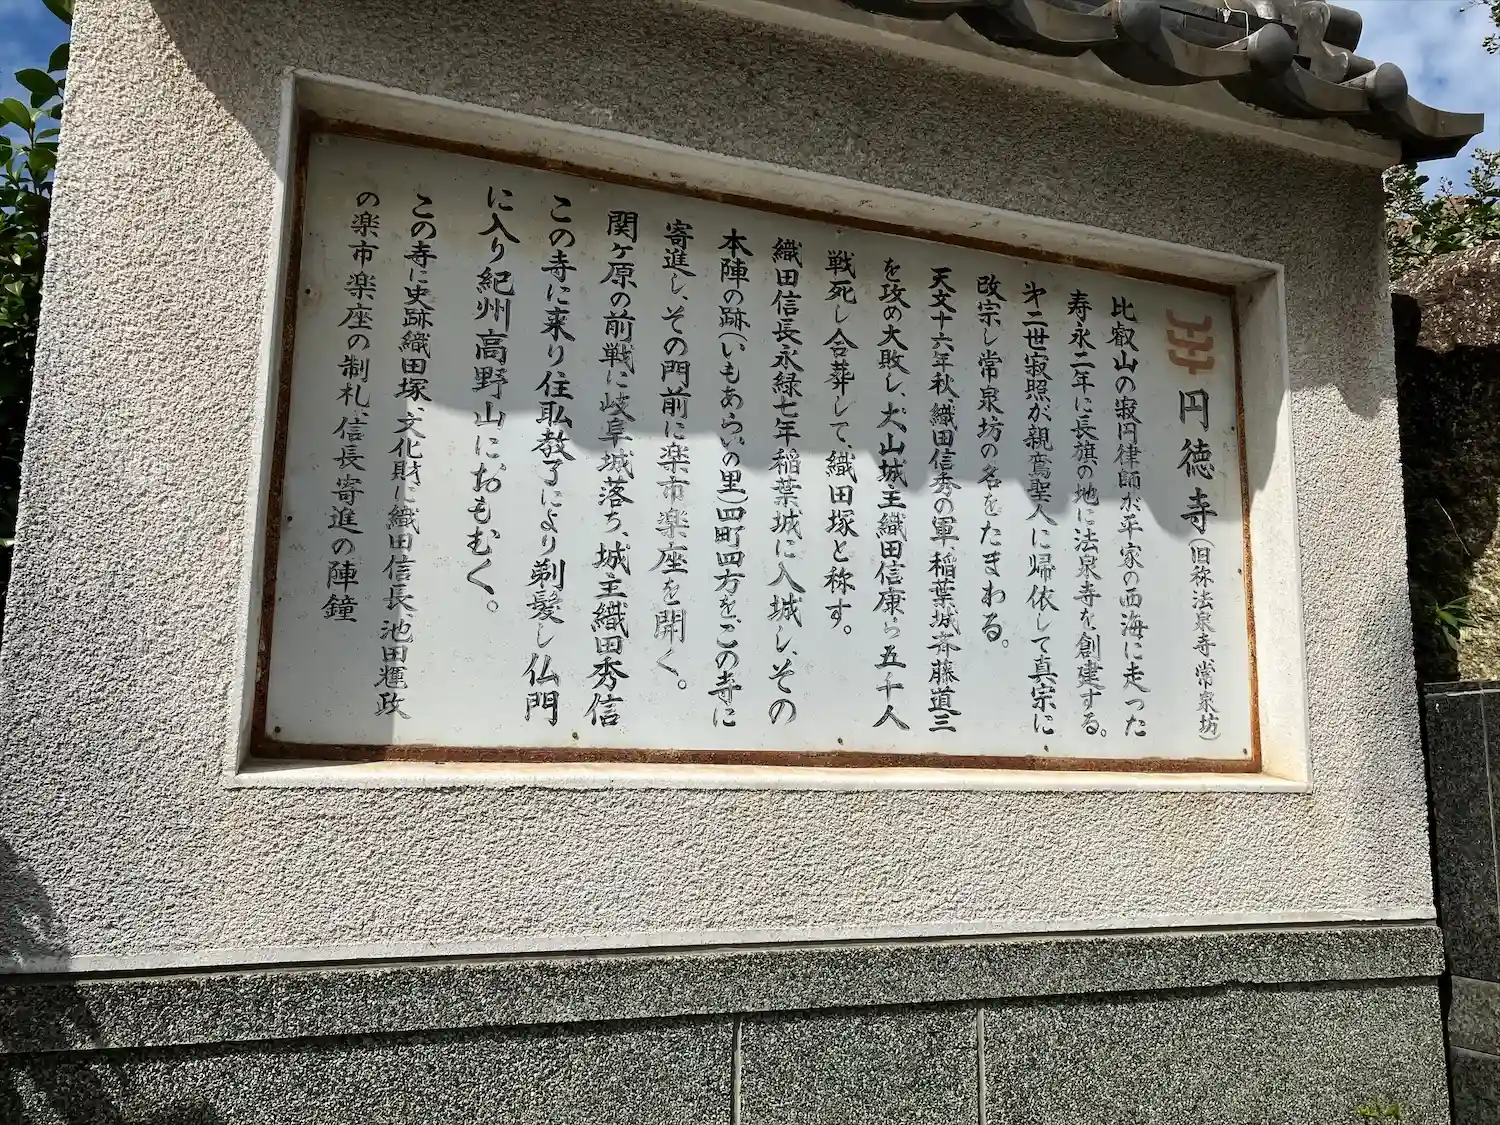 円徳寺(旧称法泉寺常泉坊)
比叡山の寂円律師が平家の西海に走った
寿永二年に長旗の地に法泉寺を創建する。
才二世寂照が親鸞聖人に帰依して真宗に
改宗し常泉坊の名をたまわる。
天文十六年秋、織田信秀の軍、稲葉城斉藤道三
を攻め大敗し、犬山城主織田信康ら五千人
戦死し合葬して、織田塚と称す。
織田信長永緑七年稲葉城に入城し、その
本陣の跡(いもあらいの里)四町四方を、この寺に
寄進し、その門前に楽市楽座を開く。
関ヶ原の前戦に岐阜城落ち、城主織田秀信
この寺に来り住職教了により剃髪し仏門
に入り紀州高野山におもむく。
この寺に史跡織田塚、文化財に織田信長、池田輝政
の楽市楽座の制札、信長寄進の陣鐘